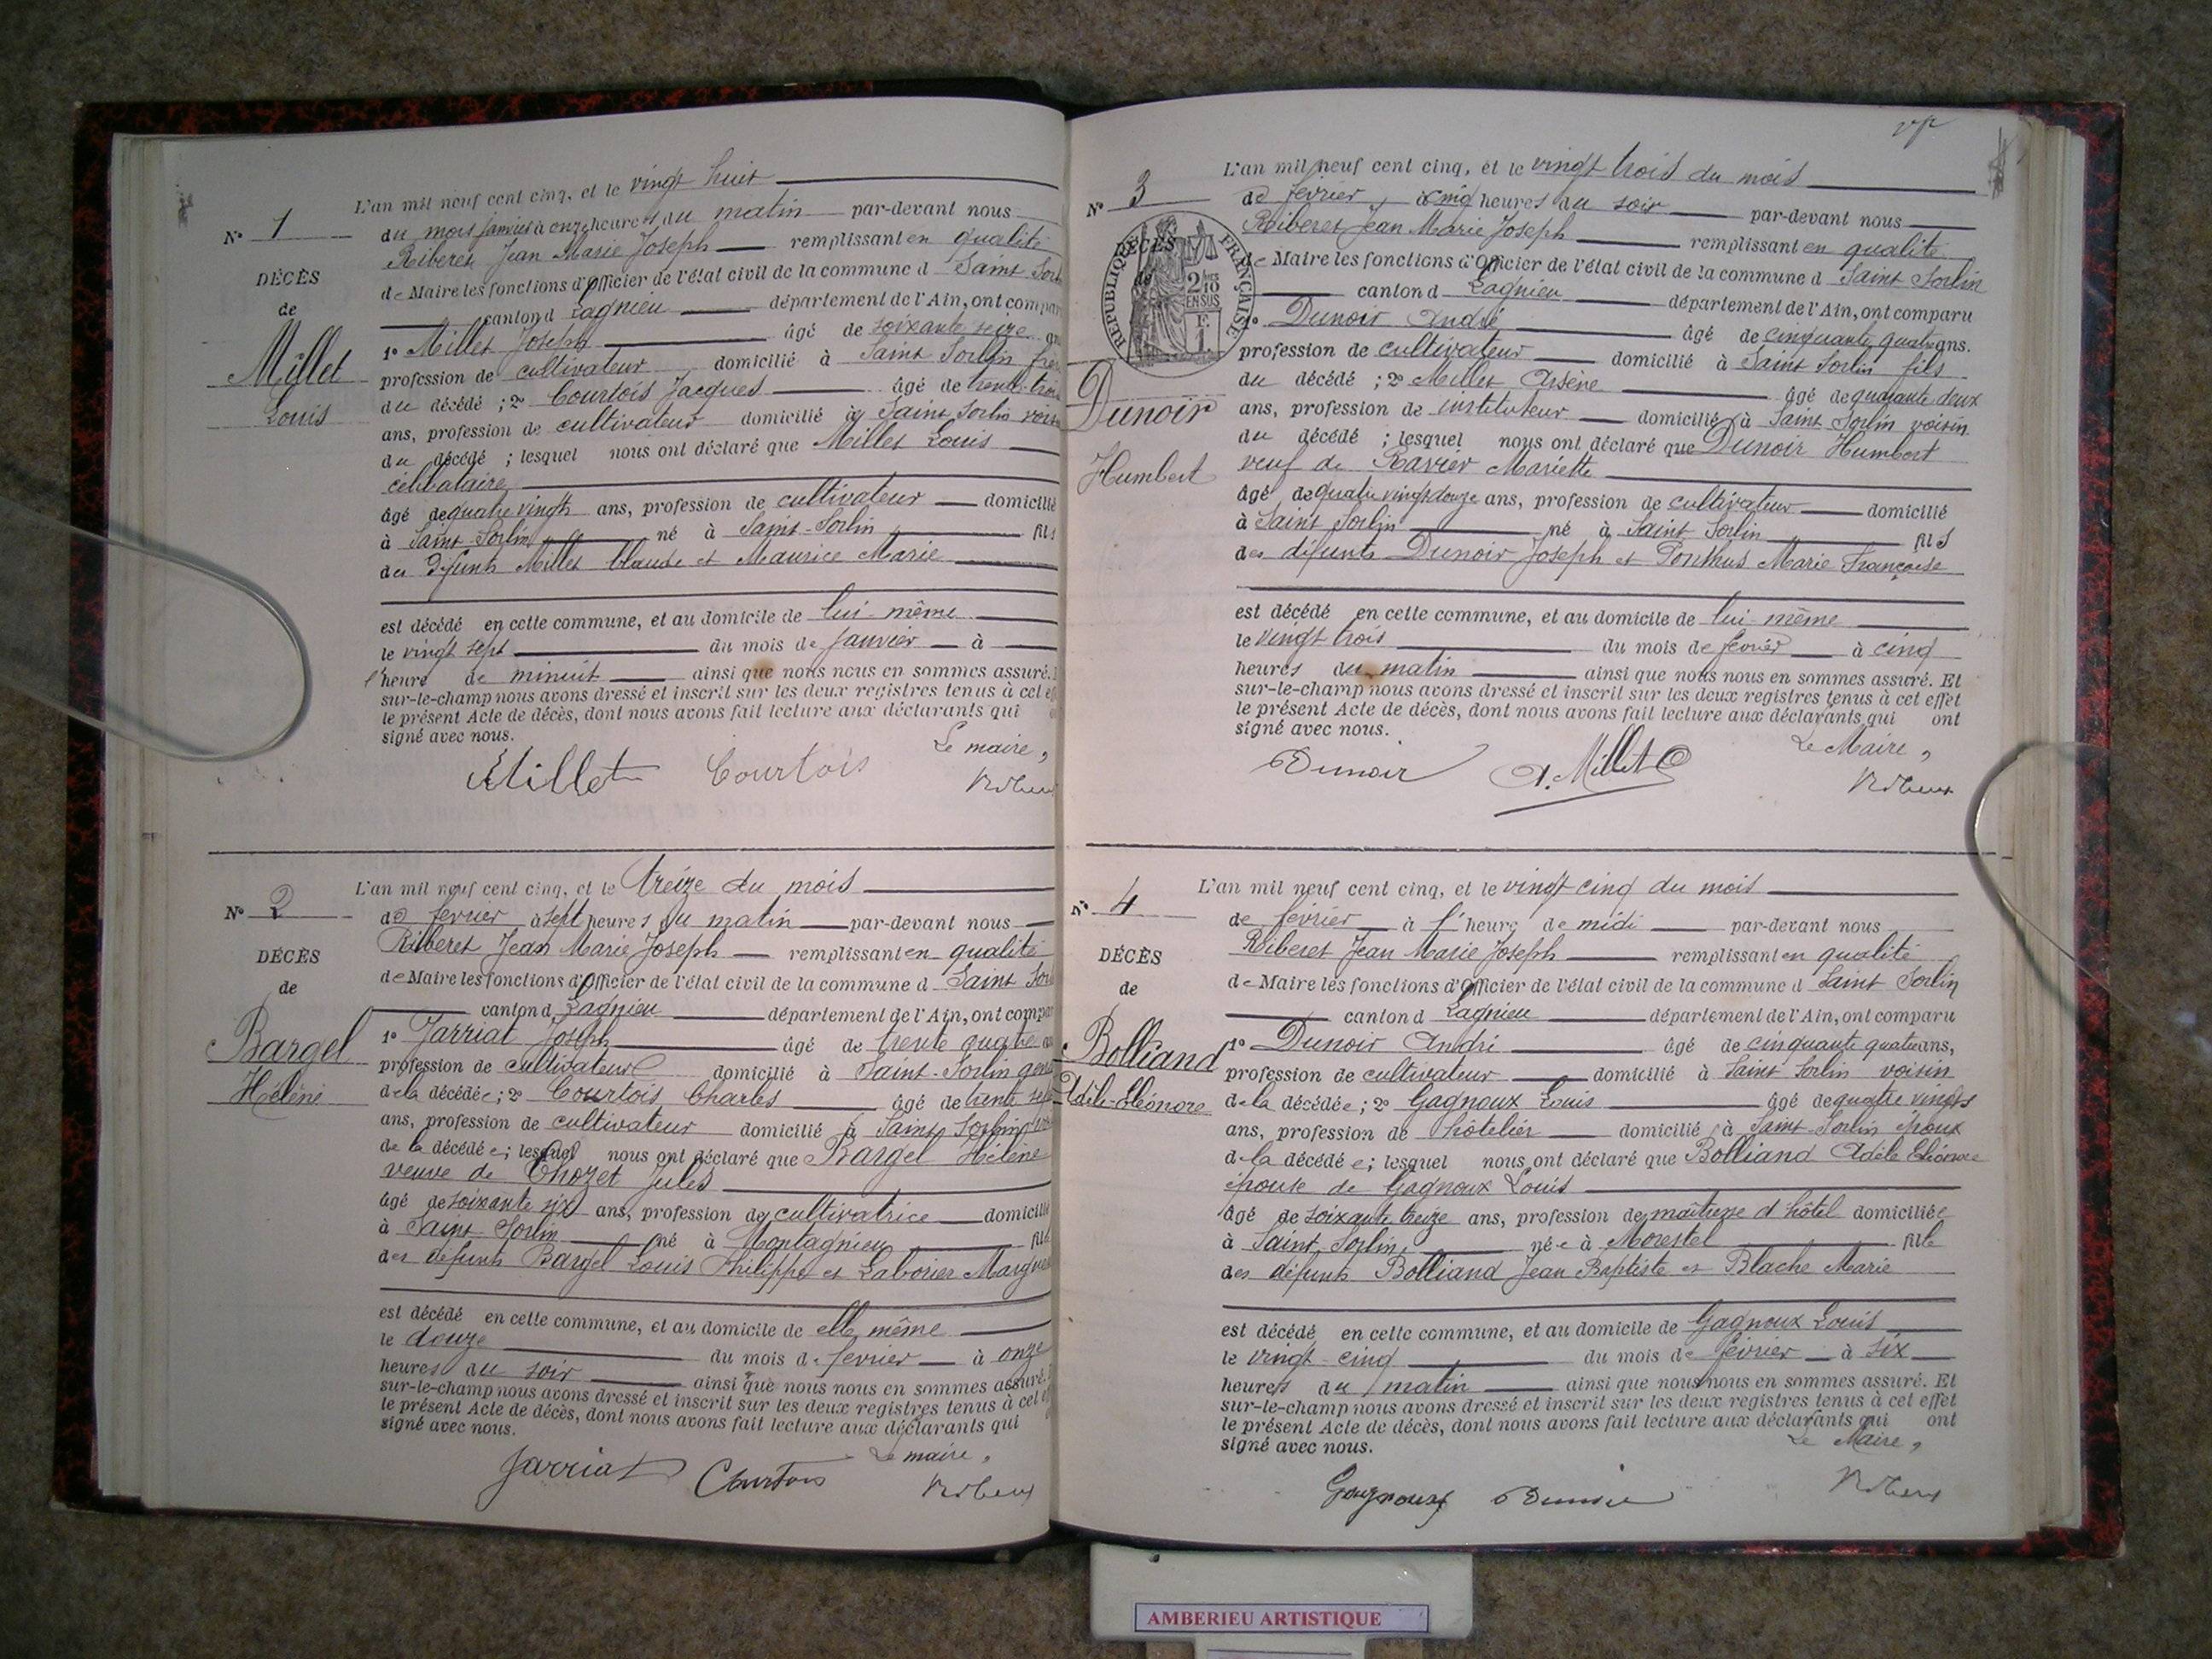 L'an mil neuf cent cinq, et le vingt huit
N° 1
du mois janvier à onze heures du matin par-devant nous
Riberet Jean Marie Joseph remplissant en qualité
DÉCÈS
de Maire les fonctions d'Officier de l'état civil de la commune d Saint Sorl
de
canton d Lagnieu département de l'Ain, ont compar
1° Millet Joseph âgé de soixante seize
Millet
profession de cultivateur domicilié à Saint Sorlin frère
Louis
du décédé ; 2° Courtois Jacques âgé de
ans, profession de cultivateur domicilié à Saint Sorlin voisin
du décédé ; lesquel nous ont déclaré que Millet Louis
célibataire
âgé de quatre vingts ans, profession de cultivateur domicilié
à Saint-Sorlin né à Saint-Sorlin fils
des défunts Millet Claude et Maurice Marie
est décédé en cette commune, et au domicile de lui-même
le vingt sept du mois de janvier à
l'heure de minuit ainsi que nous nous en sommes assuré.
sur-le-champ nous avons dressé et inscrit sur les deux registres tenus à cet
le présent Acte de décès, dont nous avons fait lecture aux déclarants qui
signé avec nous.
Le maire,
Millet Courtois
L'an mil neuf cent cinq, et le treize du mois
N° 2
de fevrier à sept heures du matin par-devant nous
Riberet Jean Marie Joseph remplissant en qualité
DÉCÈS
de Maire les fonctions d'Officier de l'état civil de la commune d Saint Sor
de
canton d Lagnieu département de l'Ain, ont compar
1° Jarriat Joseph âgé de trente quatre
Bargel
profession de cultivateur domicilié à Saint-Sorlin
Hélène
de la décédée ; 2° Courtois Charles âgé de trente
ans, profession de cultivateur domicilié à Saint Sorlin
de la décédée ; lesquel nous ont déclaré que Bargel Hélène
veuve de Chozet Jules
âgé de soixante six ans, profession de cultivatrice domicilié
à Saint-Sorlin né à Montagnieu
des défunts Bargel Louis Philippe et Laborier
est décédé en cette commune, et au domicile de elle même
le douze du mois de fevrier à onze
heures du soir ainsi que nous nous en sommes assuré.
sur-le-champ nous avons dressé et inscrit sur les deux registres tenus à cet
le présent Acte de décès, dont nous avons fait lecture aux déclarants qui
signé avec nous.
Le maire,
Jarriat Courtois
L'an mil neuf cent cinq, et le vingt trois du mois
N° 3
de fevrier à cinq heures du soir par-devant nous
Riberet Jean Marie Joseph remplissant en qualité
DÉCÈS
de
RÉPUBLIQUE FRANÇAISE
2/10
EN SUS
de Maire les fonctions d'Officier de l'état civil de la commune d Saint Sorlin
canton d Lagnieu département de l'Ain, ont comparu
1° Dunoir André âgé de cinquante quatre ans.
profession de cultivateur domicilié à Saint Sorlin fils
Dunoir
du décédé ; 2° Millet Arsène âgé de quarante deux
ans, profession de instituteur domicilié à Saint Sorlin voisin
du décédé ; lesquel nous ont déclaré que Dunoir Humbert
Humbert
veuf de Ravier Mariette
âgé de quatre vingt douze ans, profession de cultivateur domicilié
à Saint Sorlin né à Saint Sorlin fils
des défunts Dunoir Joseph et Ponthus Marie Françoise
est décédé en cette commune, et au domicile de lui-même
le vingt trois du mois de fevrier à cinq
heures du matin ainsi que nous nous en sommes assuré. Et
sur-le-champ nous avons dressé et inscrit sur les deux registres tenus à cet effet
le présent Acte de décès, dont nous avons fait lecture aux déclarants qui ont
signé avec nous.
Le Maire,
Dunoir A. Millet
L'an mil neuf cent cinq, et le vingt cinq du mois
N° 4
de février à l'heure de midi par-devant nous
Riberet Jean Marie Joseph remplissant en qualité
DÉCÈS
de Maire les fonctions d'Officier de l'état civil de la commune d Saint Sorlin
de
canton d Lagnieu département de l'Ain, ont comparu
Bolliand
1° Dunoir André âgé de cinquante quatre ans,
profession de cultivateur domicilié à Saint Sorlin voisin
Adèle-Eléonore
de la décédée ; 2° Gagnoux Louis âgé de quatre vingts
ans, profession de hôtelier domicilié à Saint-Sorlin époux
de la décédée ; lesquel nous ont déclaré que Bolliand Adèle Eléonore
épouse de Gagnoux Louis
âgé de soixante treize ans, profession de maîtresse d'hôtel domiciliée
à Saint Sorlin, née à Morestel fille
des défunts Bolliand Jean Baptiste et Blache Marie
est décédé en cette commune, et au domicile de Gagnoux Louis
le vingt-cinq du mois de février à six
heures du matin ainsi que nous nous en sommes assuré. Et
sur-le-champ nous avons dressé et inscrit sur les deux registres tenus à cet effet
le présent Acte de décès, dont nous avons fait lecture aux déclarants qui ont
signé avec nous.
Le Maire,
Gagnoux Dunoir
AMBERIEU ARTISTIQUE